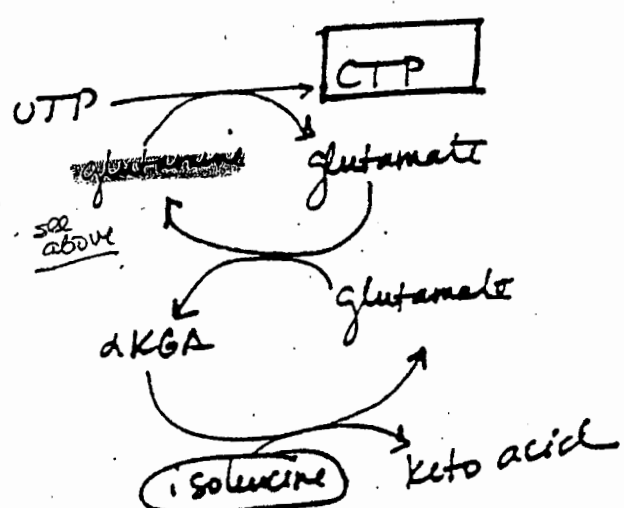 UTP
CTP
glutamine
glutamate
see
above
glutamate
αKGA
isoleucine
keto acid